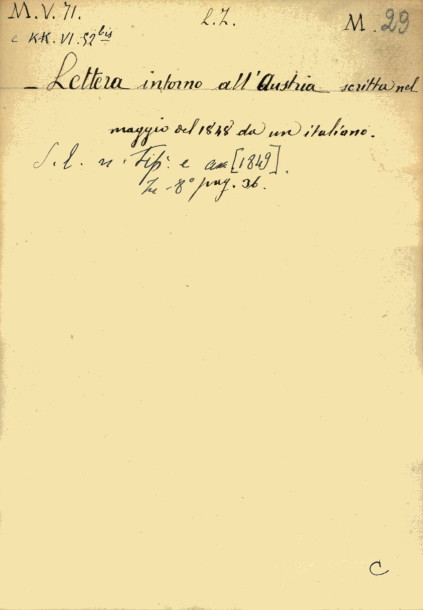 M. V. 71.
L. Z.
M. 29
e KK. VI. 52 bis
Lettera intorno all'Austria scritta nel
maggio del 1848 da un italiano.
S. l. n. Tip. e a [1849].
In-8° pag. 36.
C